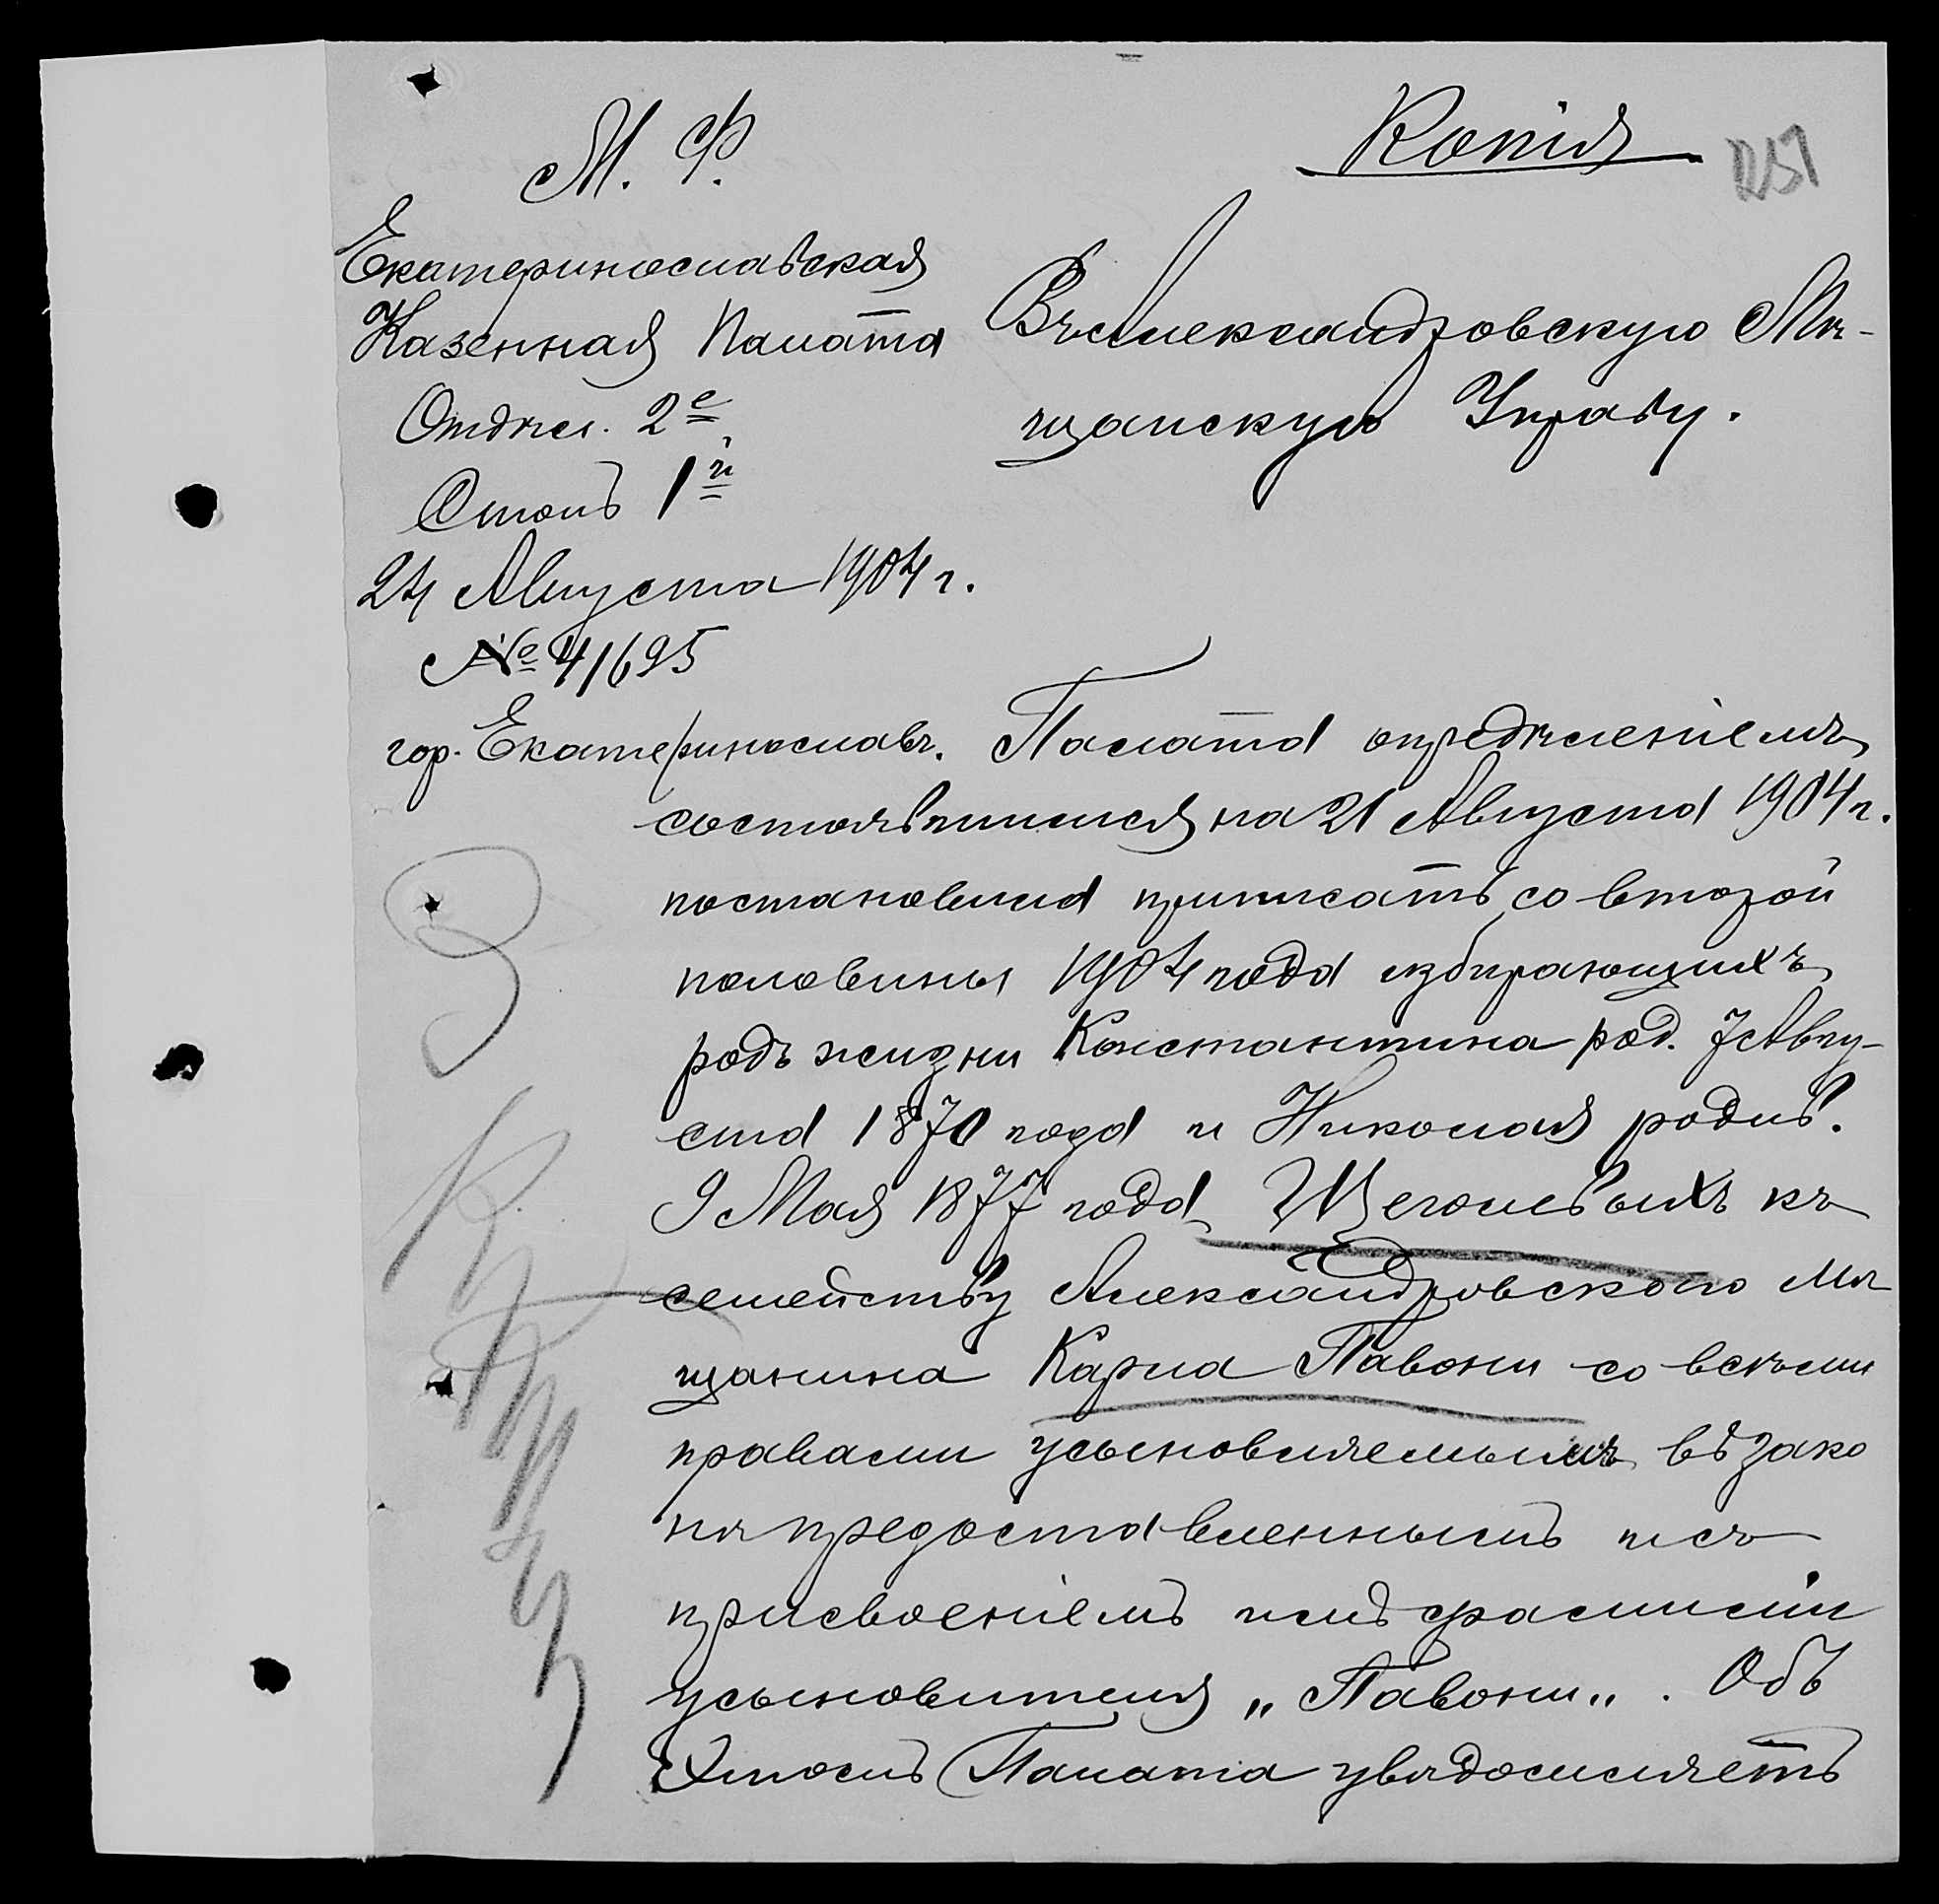 Копія
М. Ф.
Екатеринославская
Казенная Палата
Отдѣл. 2е
Столъ 1й
24 Августа 1904 г.
№ 41695
гор. Екатеринославъ.
Въ Александровскую Мѣ-
щанскую Управу.
Палата опредѣленіемъ
состоявшимся на 21 Августа 1904 г.
постановила приписать со второй
половины 1904 года избирающихъ
родъ жизни Константина род. 7 Авгу-
ста 1870 года и Николая родив.
9 Мая 1877 года Щеголевыхъ къ
семейству Александровскаго мѣ
щанина Карла Павони со всѣми
правами усыновляемымъ въ зако
нѣ предоставленнымъ и съ
присвоеніемъ имъ фамиліи
усыновителя „Павони„. Объ
этомъ Палата увѣдомляетъ